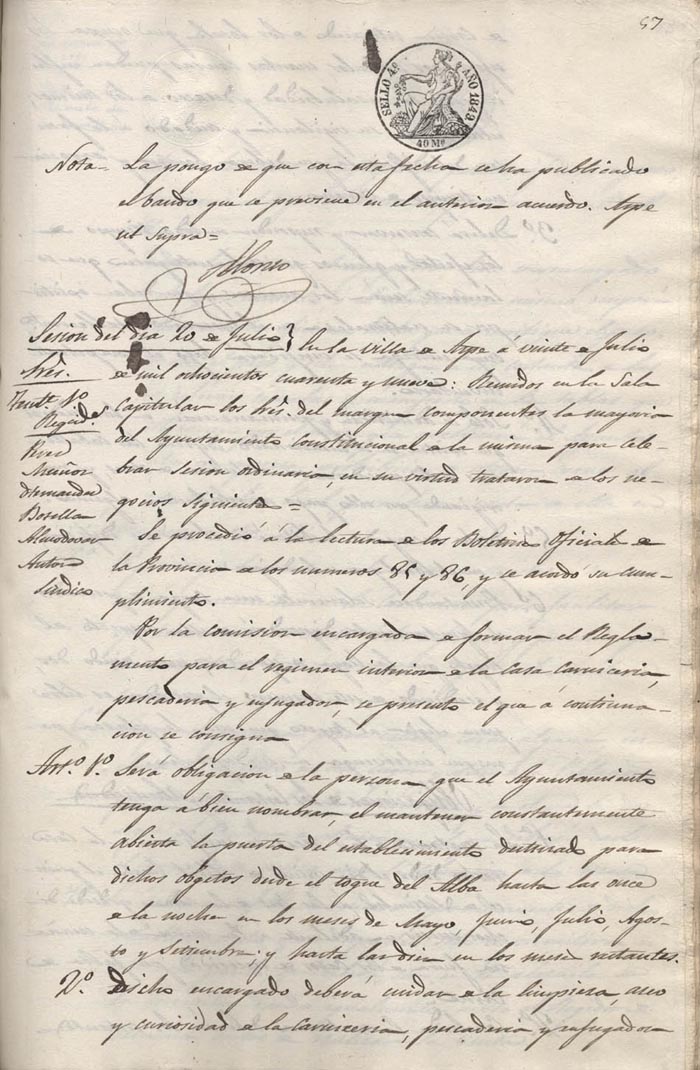 57
SELLO 4º AÑO 1849
40 Ms
Nota = La pongo de que con esta fecha se ha publicado
el bando que se previene en el anterior acuerdo. Aspe
ut supra =
Alonso
Sesion del dia 20 de Julio } En la villa de Aspe á veinte de Julio
Sres.
de mil ochocientos cuarenta y nueve: Reunidos en la Sala
Tente. 1º
Capitular los Sres. del margen componentes la mayoria
Regids.
del Ayuntamiento Constitucional de la misma para cele-
brar sesion ordinaria, en su virtud trataron de los ne-
Muñoz
gocios siguientes =
Botella
Almodovar
Se procedió á la lectura de los Boletines oficiales de
Autor
la Provincia de los numeros 85 y 86, y se acordó su cum-
Sindico
plimiento.
Por la comision encargada de formar el Regla-
mento para el regimen interior de la Casa Carniceria,
pescaderia y repesador, se presento el que á continua-
cion se consigna
Arto. 1º. Será obligacion de la persona que el Ayuntamiento
tenga á bien nombrar, el mantener constantemente
abierta la puerta del establecimiento destinado para
dichos objetos desde el toque del Alba hasta las once
de la noche en los meses de Mayo, Junio, Julio, Agos-
to y Setiembre; y hasta las diez en los meses restantes.
2º. Dicho encargado deberá cuidar de la limpieza, aseo
y curiosidad de la carniceria, pescaderia y repesador